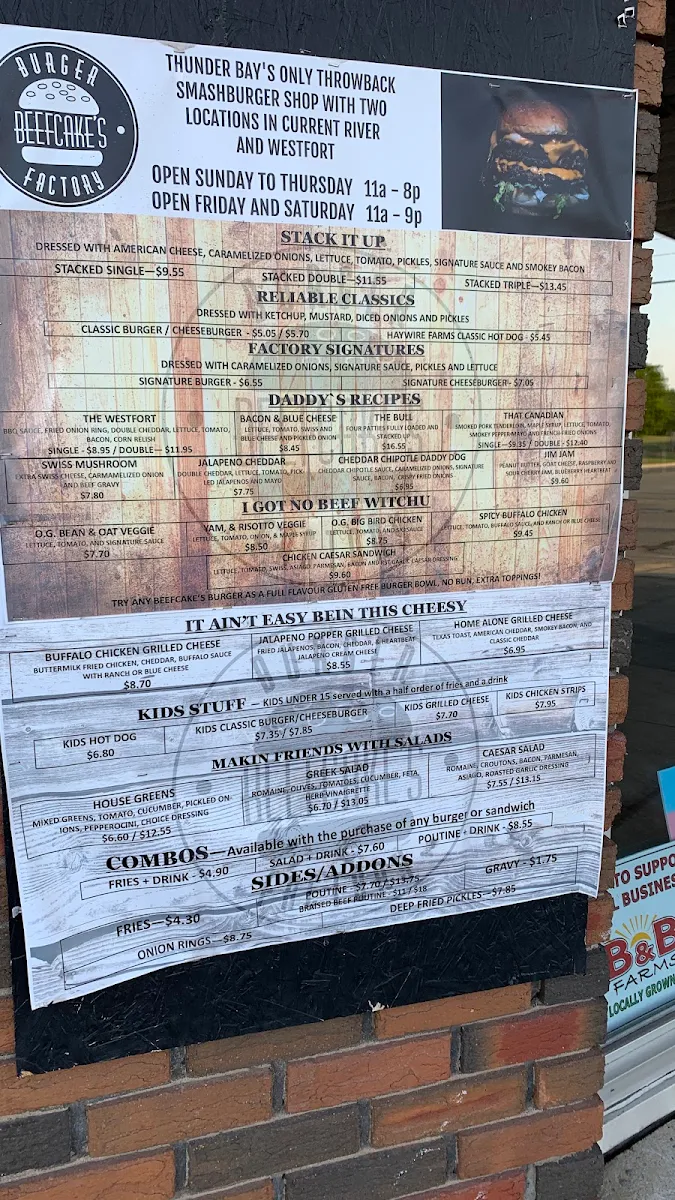 BURGER
BEEFCAKE'S
FACTORY
THUNDER BAY'S ONLY THROWBACK
SMASHBURGER SHOP WITH TWO
LOCATIONS IN CURRENT RIVER
AND WESTFORT
OPEN SUNDAY TO THURSDAY 11a - 8p
OPEN FRIDAY AND SATURDAY 11a - 9p
STACK IT UP
DRESSED WITH AMERICAN CHEESE, CARAMELIZED ONIONS, LETTUCE, TOMATO, PICKLES, SIGNATURE SAUCE AND SMOKEY BACON
STACKED SINGLE—$9.55
STACKED DOUBLE—$11.55
STACKED TRIPLE—$13.45
RELIABLE CLASSICS
DRESSED WITH KETCHUP, MUSTARD, DICED ONIONS AND PICKLES
CLASSIC BURGER / CHEESEBURGER - $5.05 / $5.70
HAYWIRE FARMS CLASSIC HOT DOG - $5.45
FACTORY SIGNATURES
DRESSED WITH CARAMELIZED ONIONS, SIGNATURE SAUCE, PICKLES AND LETTUCE
SIGNATURE BURGER - $6.55
SIGNATURE CHEESEBURGER- $7.05
DADDY`S RECIPES
THE WESTFORT
BBQ SAUCE, FRIED ONION RING, DOUBLE CHEDDAR, LETTUCE, TOMATO,
BACON, CORN RELISH
SINGLE - $8.95 / DOUBLE— $11.95
BACON & BLUE CHEESE
LETTUCE, TOMATO, SWISS AND
BLUE CHEESE AND PICKLED ONION
$8.45
THE BULL
FOUR PATTIES FULLY LOADED AND
STACKED UP
$16.55
THAT CANADIAN
SMOKED PORK TENDERLOIN, MAPLE SYRUP, LETTUCE, TOMATO,
SMOKEY PEPPER MAYO AND FRENCH FRIED ONIONS
SINGLE—$9.35 / DOUBLE - $12.40
SWISS MUSHROOM
EXTRA SWISS CHEESE, CARMAMELIZED ONION
AND BEEF GRAVY
$7.80
JALAPENO CHEDDAR
DOUBLE CHEDDAR, LETTUCE, TOMATO, PICK-
LED JALAPENOS AND MAYO
$7.75
CHEDDAR CHIPOTLE DADDY DOG
CHEDDAR CHIPOTLE SAUCE, CARAMELIZED ONIONS, SIGNATURE
SAUCE, BACON, CRISPY FRIED ONIONS
$6.95
JIM JAM
PEANUT BUTTER, GOAT CHEESE, RASPBERRY AND
SOUR CHERRY JAM, BLUEBERRY HEARTBEAT
$9.60
I GOT NO BEEF WITCHU
O.G. BEAN & OAT VEGGIE
LETTUCE, TOMATO, AND SIGNATURE SAUCE
$7.70
YAM, & RISOTTO VEGGIE
LETTUCE, TOMATO, ONION, & MAPLE SYRUP
$8.50
O.G. BIG BIRD CHICKEN
LETTUCE, TOMATO, AND SIG SAUCE
$8.75
SPICY BUFFALO CHICKEN
LETTUCE, TOMATO, BUFFALO SAUCE, AND RANCH OR BLUE CHEESE
$9.45
CHICKEN CAESAR SANDWICH
LETTUCE, TOMATO, SWISS, ASIAGO, PARMESAN, BACON AND RST GARLIC CAESAR DRESSING
$9.60
TRY ANY BEEFCAKE'S BURGER AS A FULL FLAVOUR GLUTEN FREE BURGER BOWL. NO BUN, EXTRA TOPPINGS!
IT AIN'T EASY BEIN THIS CHEESY
BUFFALO CHICKEN GRILLED CHEESE
BUTTERMILK FRIED CHICKEN, CHEDDAR, BUFFALO SAUCE
WITH RANCH OR BLUE CHEESE
$8.70
JALAPENO POPPER GRILLED CHEESE
FRIED JALAPENOS, BACON, CHEDDAR, & HEARTBEAT
JALAPENO CREAM CHEESE
$8.55
HOME ALONE GRILLED CHEESE
TEXAS TOAST, AMERICAN CHEDDAR, SMOKEY BACON, AND
CLASSIC CHEDDAR
$6.95
KIDS STUFF – KIDS UNDER 15 served with a half order of fries and a drink
KIDS HOT DOG
$6.80
KIDS CLASSIC BURGER/CHEESEBURGER
$7.35 / $7.85
KIDS GRILLED CHEESE
$7.70
KIDS CHICKEN STRIPS
$7.95
MAKIN FRIENDS WITH SALADS
HOUSE GREENS
MIXED GREENS, TOMATO, CUCUMBER, PICKLED ON-
IONS, PEPPEROCINI, CHOICE DRESSING
$6.60 / $12.55
GREEK SALAD
ROMAINE, OLIVES, TOMATOES, CUCUMBER, FETA,
HERB VINAIGRETTE
$6.70 / $13.05
CAESAR SALAD
ROMAINE, CROUTONS, BACON, PARMESAN,
ASIAGO, ROASTED GARLIC DRESSING
$7.55 / $13.15
COMBOS—Available with the purchase of any burger or sandwich
FRIES + DRINK - $4.90
SALAD + DRINK - $7.60
POUTINE + DRINK - $8.55
SIDES/ADDONS
FRIES—$4.30
POUTINE - $7.70 / $13.75
BRAISED BEEF POUTINE - $11 / $18
GRAVY - $1.75
ONION RINGS—$8.75
DEEP FRIED PICKLES—$7.85
TO SUPPO
BUSINES
B&B
FARMS
LOCALLY GROWN